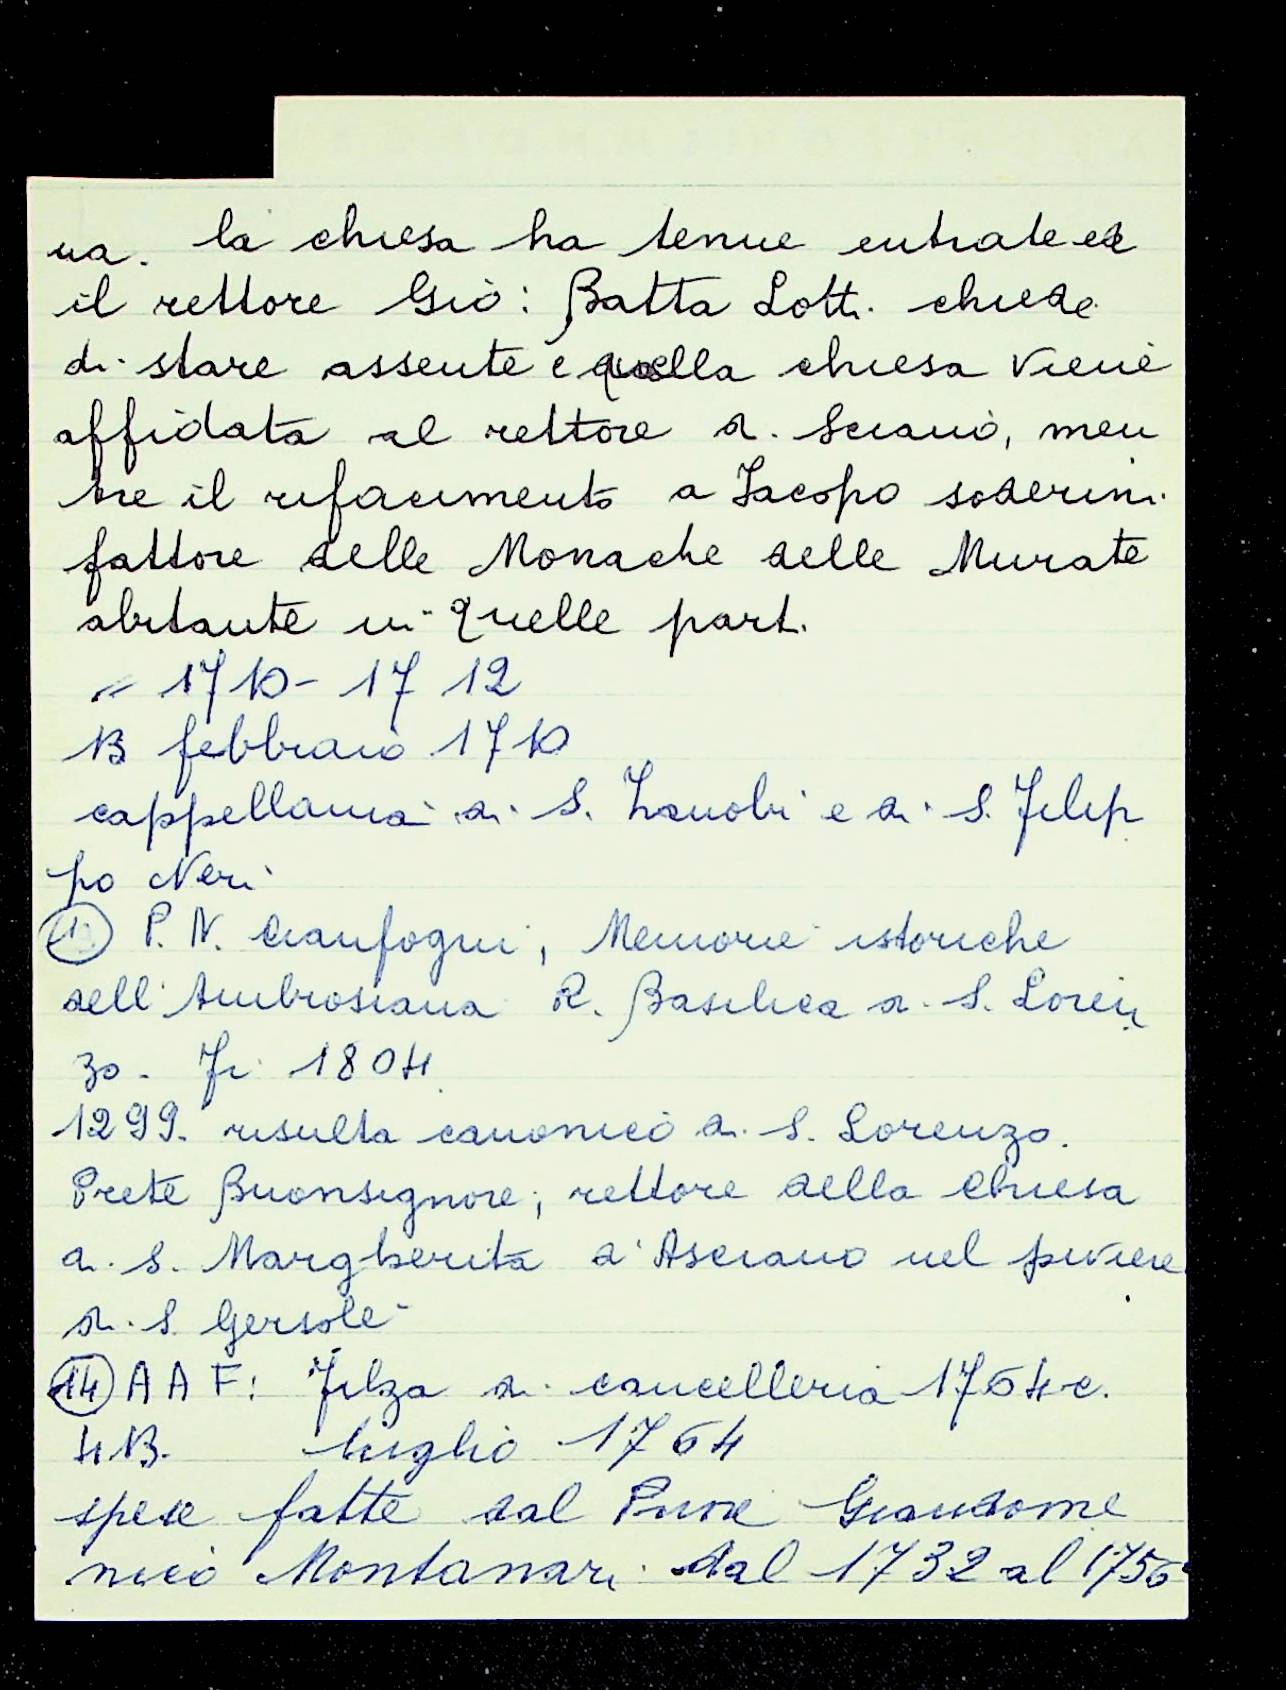 na. la chiesa ha tenue entrate ed
il rettore Giò: Batta Lotti chiede
di stare assente e quella chiesa viene
affidata al rettore di Sciano, men
tre il rifacimento a Iacopo soderini
fattore delle Monache delle Murate
abitante in quelle parti.
" 1710-1712
13 febbraio 1710
cappellania di S. Zanobi e di S. Filip
po Neri
① P. N. Cianfogni, Memorie istoriche
dell'Ambrosiana R. Basilica di S. Loren
zo. Fi 1804
1299. risulta canonico di S. Lorenzo.
Prete Buonsignore, rettore della Chiesa
di S. Margherita d'Asciano nel piviere
di S Gersolè
⑭ A A F: Filza di cancelleria 1764 c.
413. luglio 1764
spese fatte dal Giandome
nico Montanari dal 1732 al 1756